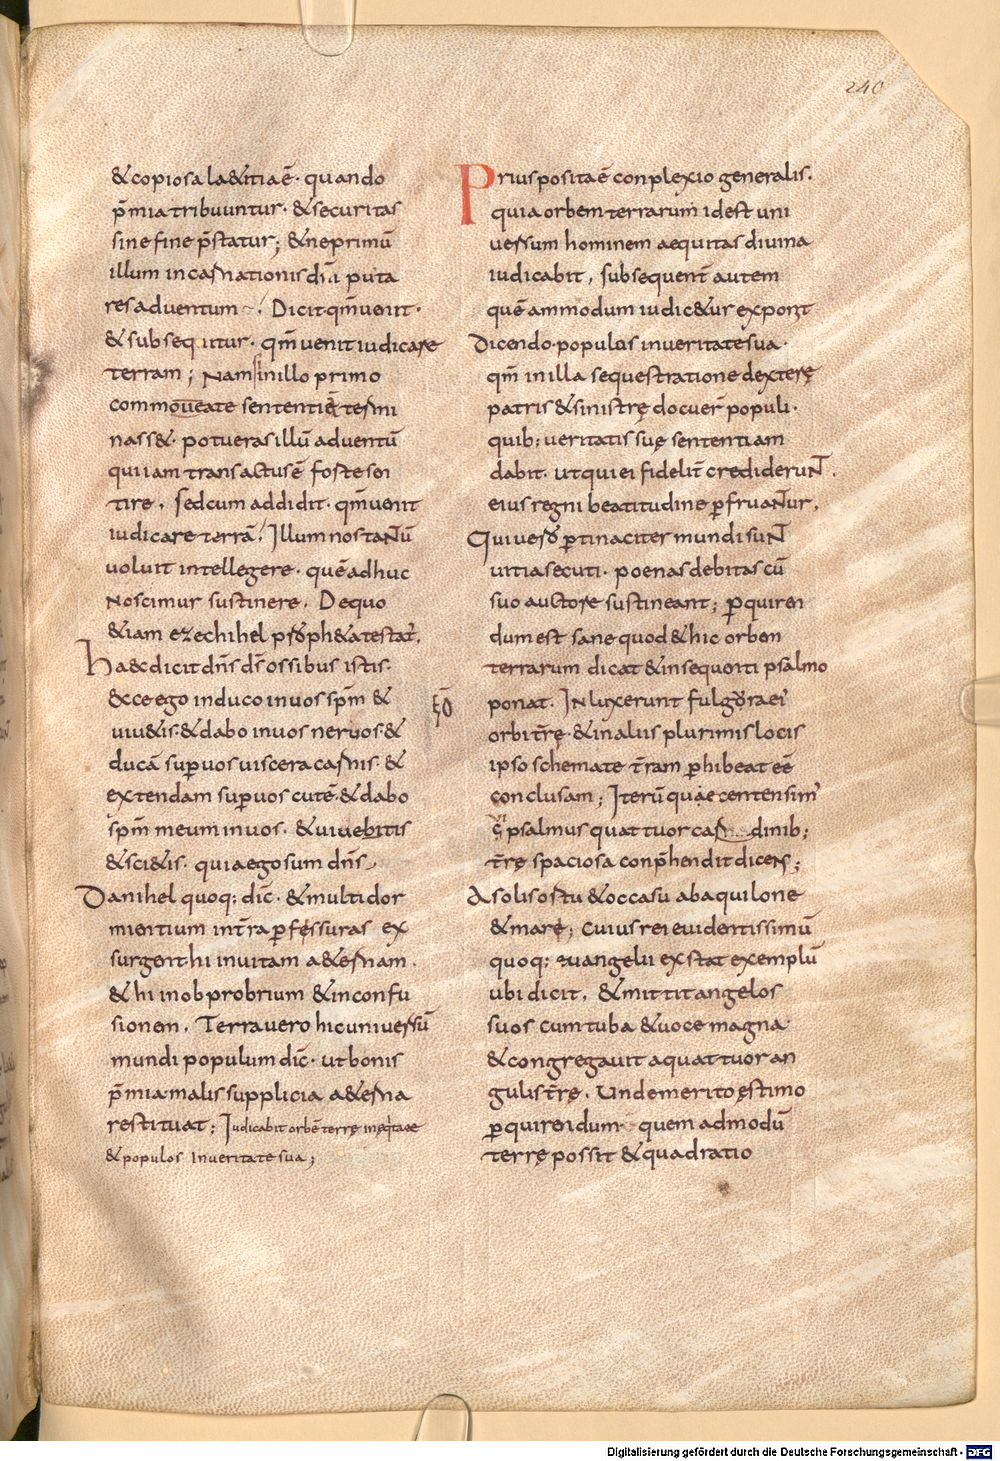 240
&copiosa la&itia ē· quando
p̄mia tribuuntur· &securitas
sine fine p̄statur; &ne primū
illum incarnationis dn̄i puta
res adventum · Dicit qm̄ uenit·
&subsequitur· qm̄ uenit iudicare
terram; Nam si in illo primo
commoveate sententię termi
nass&· potueras illū adventū
qui iam transactus ē forte sen
tire. sed cum addidit· qm̄ uenit
iudicare terrā, Illum nos tantū
uoluit intellegere· quē adhuc
Noscimur sustinere. De quo
&iam ezechihel proph&a testat̄.
Haec dicit dn̄s d̄s ossibus istis·
&cce ego induco in uos sp̄m &
uiu&is·&dabo in uos neruos·&
ducā sup uos uiscera carnis·&
extendam sup uos cutē·&dabo
sp̄m meum in uos· &uiuebitis
&sci&is· quia ego sum dn̄s,
Danihel quoq; dic̄· &multi dor
mientium intra p̱ fessuras ex
surgent· hi in uitam a&ernam.
&hi in obprobrium &in confu
sionem. Terra uero hic uniuersū
mundi populum dic̄· ut bonis
p̄mia· malis supplicia a&erna
restituat; Iudicabit orbē terrę in ęq̄tate
&populos In ueritate sua;
Prius posita ē conplexio generalis·
quia orbem terrarum id est uni
uersum hominem aequitas diuina
iudicabit, subsequent̄ autem
quē ammodum iudic&ur exponit
Dicendo· populos in ueritate sua·
qm̄ in illa sequestratione dexterę
patris &sinistrę docuer̄ populi·
quib; ueritatis suę sententiam
dabit· ut qui ei fidelit̄ crediderunt.
eius regni beatitudine p̱fruantur.
Qui uero p̱tinaciter mundi sunt
uitia secuti· poenas debitas cū
suo auctore sustineant; p̱quiren
dum est sane quod &hic orbem
terrarum dicat &in sequenti psalmo
ponat. Inluxerunt fulgora ei
orbi tr̄rę·&in aliis plurimis locis
ipso schemate tr̄ram p̱hibeat eē
conclusam; Iterū quae centensim'
VI psalmus quattuor cardinib;
tr̄rę spaciosa conp̄hendit dicens;
A solis ortu &occasu ab aquilone
&mare; Cuius rei euidentissimū
quoq; euangelii exstat exemplū
ubi dicit. &mittit angelos
suos cum tuba &uoce magna·
&congregauit a quattuor an
gulis tr̄rę. Unde merito ęstimo
p̱quirendum quem admodū
terrę possit &quadratio
Digitalisierung gefördert durch die Deutsche Forschungsgemeinschaft - DFG